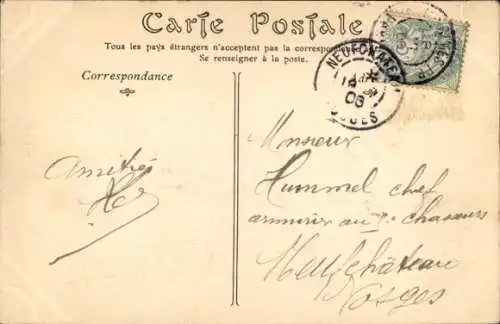 Carte Postale
Tous les pays étrangers n'acceptent pas la correspondance
Se renseigner à la poste.
Correspondance
NEUFCHATEAU
08
VOSGES
Amitiés
Monsieur
Hummel chef
armurier au chasseurs
Neufchâteau
Vosges